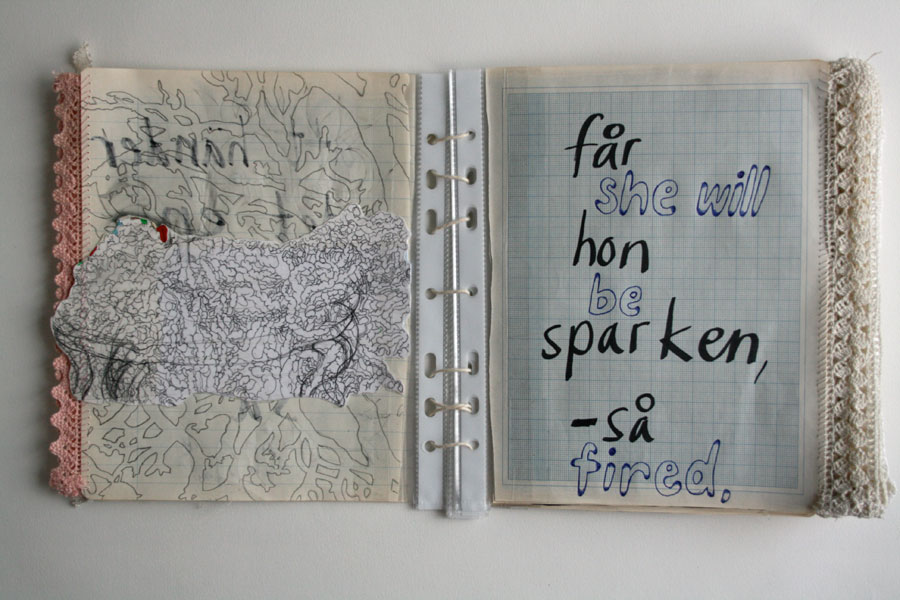 händer
får
she will
hon
be
sparken,
-så
fired.